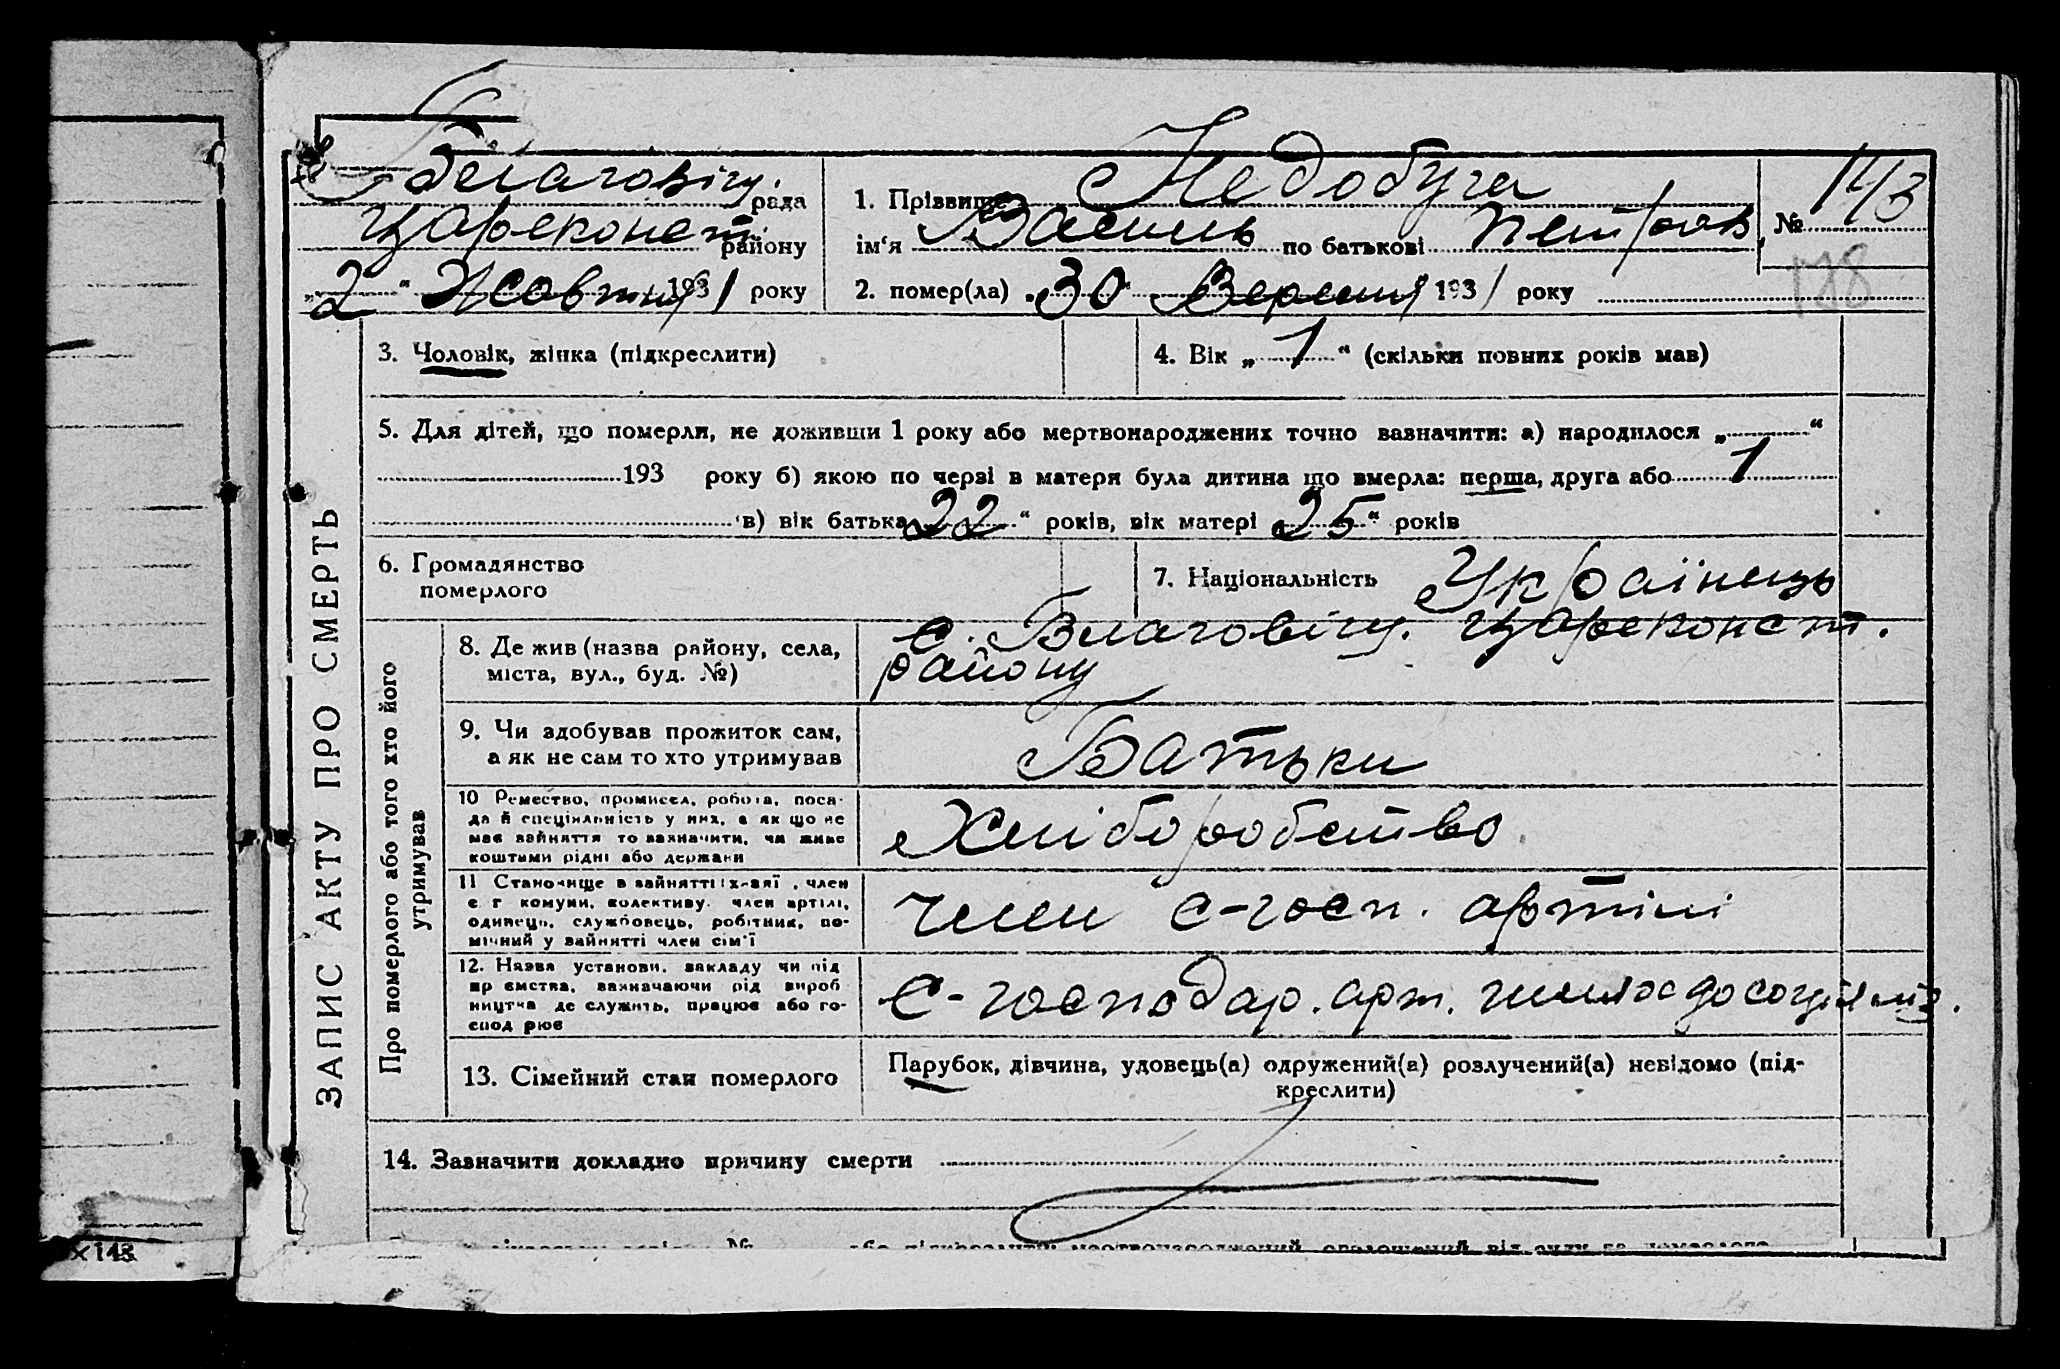 Благовіщ. рада
Цареконст. району
„2“ Жовтня 1931 року
1. Прізвище Недобуга
ім‘я Василь по батькові Петров. № 143
2. помер(ла) „30“ Вересня 1931 року 178
3. Чоловік, жінка (підкреслити)
4. Вік „1“ (скільки повних років мав)
5. Для дітей, що померли, не доживши 1 року або мертвонароджених точно зазначити: а) народилося „ “
193 року б) якою по черзі в матеря була дитина що вмерла: перша, друга або 1
в) вік батька 22“ років, вік матері 25“ років
6. Громадянство
померлого
7. Національність Українець
ЗАПИС АКТУ ПРО СМЕРТЬ
Про померлого або того хто його
утримував
8. Де жив (назва району, села,
міста, вул., буд. №)
с. Благовіщ. Цареконст.
району
9. Чи здобував прожиток сам,
а як не сам то хто утримував
Батьки
10 Ремество, промисел, робота, поса-
да й спеціяльність у них, а як що не
має зайняття то зазначити, чи живе
коштами рідні або держави
Хліборобство
11 Становище в зайнятті: х-зяї , член
с г комуни, колективу. член артілі,
одинець, службовець, робітник, по-
мічний у зайнятті член сім‘ї
член с-госп. артілі
12. Назва установи, закладу чи під
пр ємства, зазначаючи рід вироб
ництва де служить, працює або го-
спод рює
с-господар. арт. шлях до соціяліз.
13. Сімейний стан померлого
Парубок, дівчина, удовець(а) одружений(а) розлучений(а) невідомо (під-
креслити)
14. Зазначити докладно причину смерти
№ або підкреслити мертвонароджений, оголошений від суду за померлого
х 143